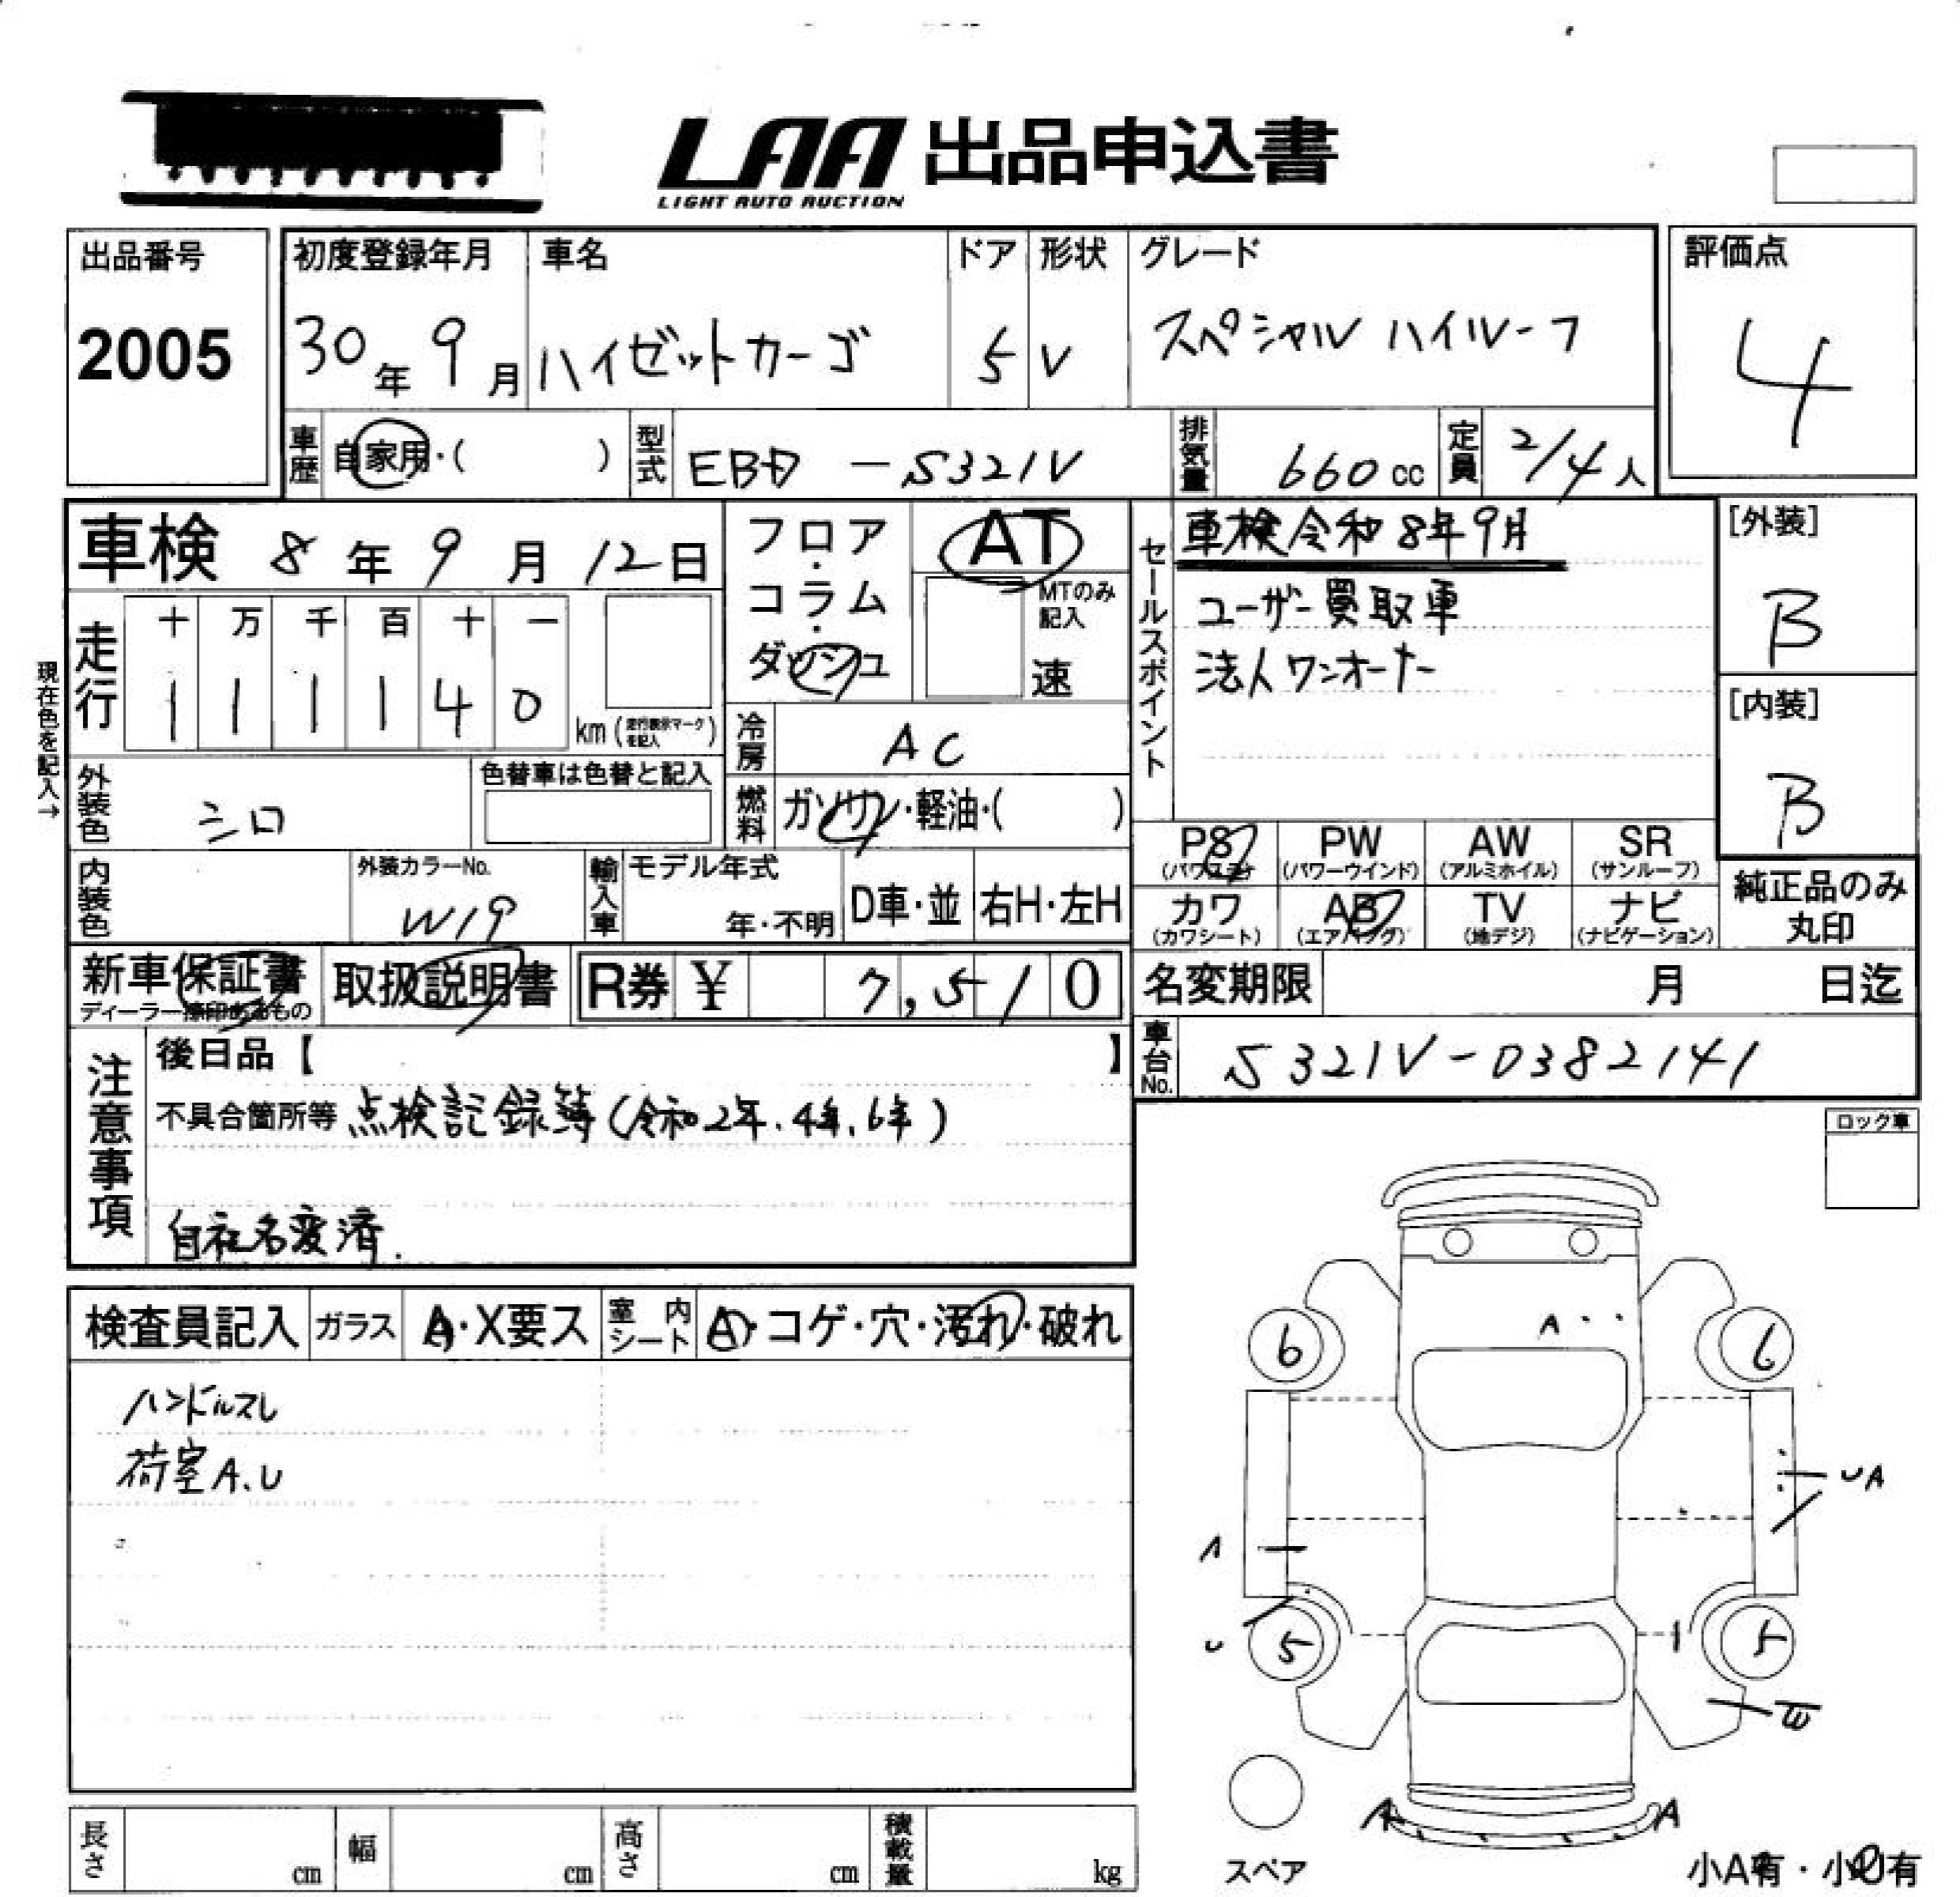 LAA 出品申込書
LIGHT AUTO AUCTION
出品番号
2005
初度登録年月
30年 9月
車名
ハイゼットカーゴ
ドア
5
形状
V
グレード
スペシャル ハイルーフ
評価点
4
車歴 自家用・( )
型式 EBD - S321V
排気量 660cc
定員 2/4人
車検 8年 9月 12日
走行 十 万 千 百 十 一
1 1 1 1 4 0 km (走行表示マークを記入)
現在色を記入→
外装色 シロ
色替車は色替と記入
内装色
外装カラーNo.
W19
フロア・コラム・ダッシュ
AT
MTのみ記入
速
冷房 AC
燃料 ガソリン・軽油・( )
輸入車 モデル年式
年・不明
D車・並
右H・左H
セールスポイント
車検令和8年9月
ユーザー買取車
法人ワンオーナー
[外装]
B
[内装]
B
PS (パワステ)
PW (パワーウインド)
AW (アルミホイル)
SR (サンルーフ)
カワ (カワシート)
AB (エアバッグ)
TV (地デジ)
ナビ (ナビゲーション)
純正品のみ丸印
新車保証書
ディーラー捺印あるもの
取扱説明書
R券 ¥ 7,510
名変期限 月 日迄
車台No. S321V-0382141
注意事項
後日品【 】
不具合箇所等 点検記録簿(令和2年.4年.6年)
自社名変済.
ロック車
検査員記入
ガラス A・X要ス
室内シート A・コゲ・穴・汚れ・破れ
ハンドルスレ
荷室A.U
A
6
6
UA
A
U
5
5
A
A
スペア
小A有・小U有
長さ cm
幅 cm
高さ cm
積載量 kg